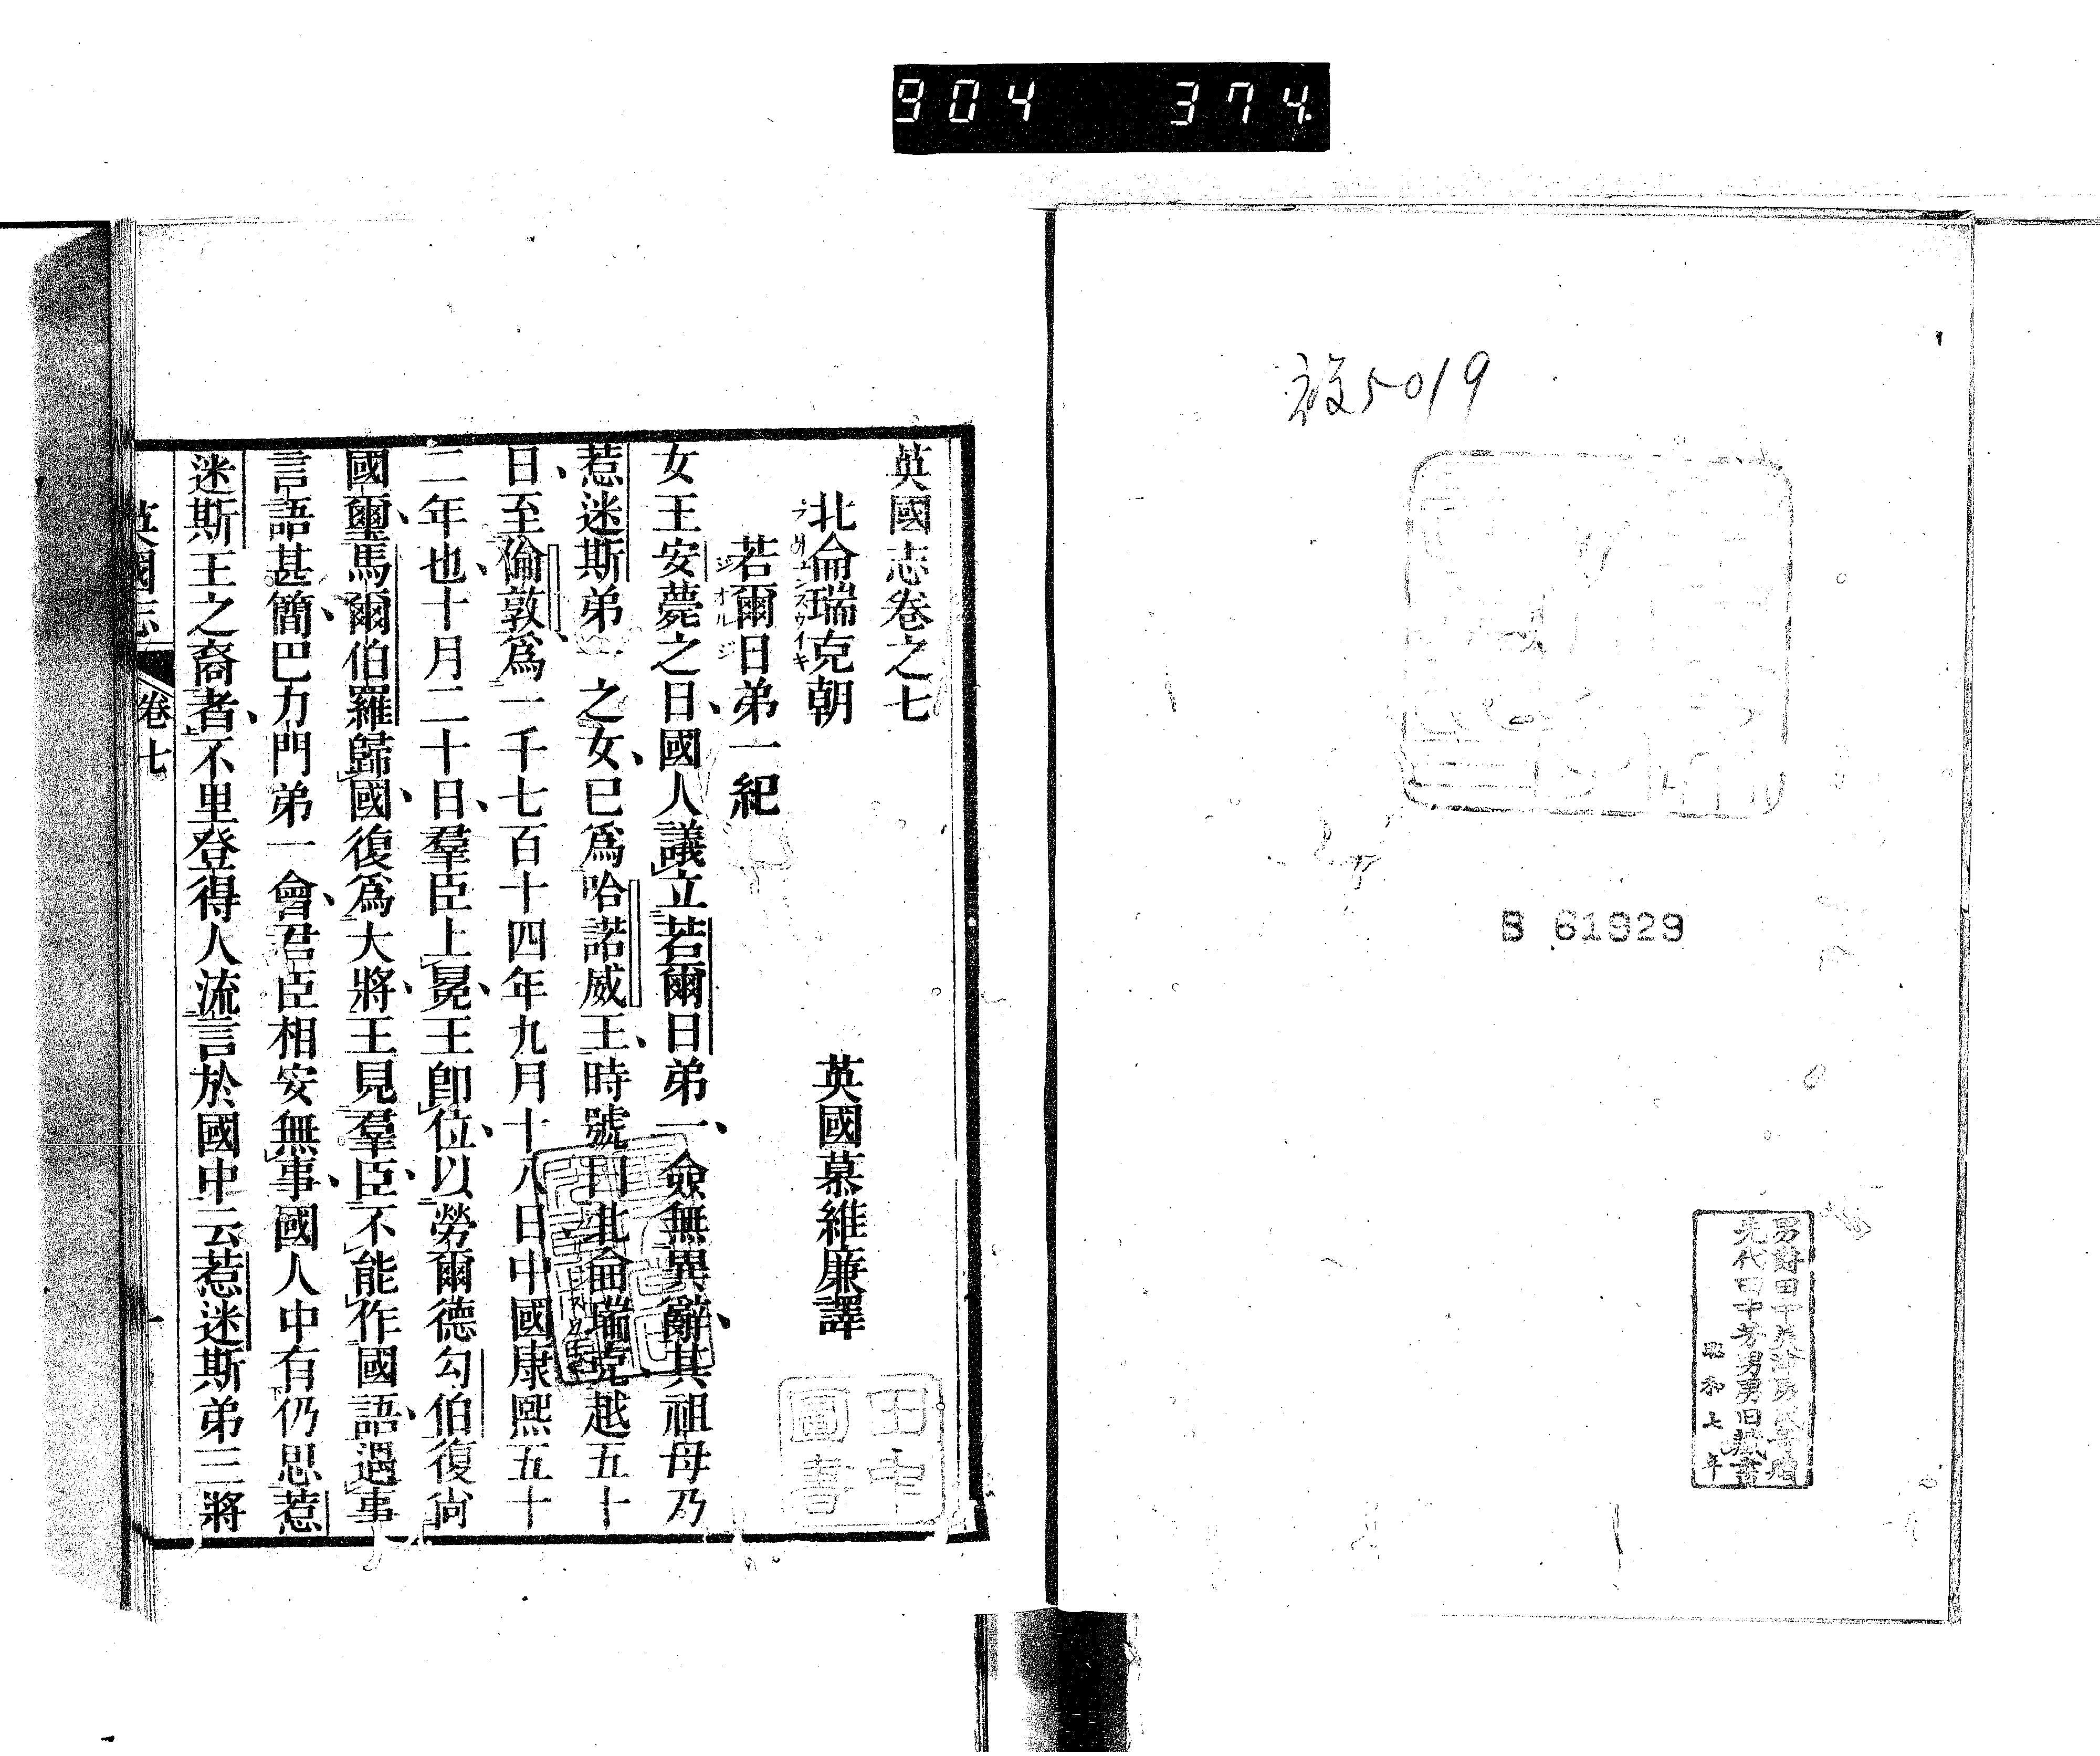 904 374
5019
B 61929
昭和七年
英國志卷之七
北侖瑞克朝 英國慕維廉譯
若爾日弟一紀
オルジ
女王安薨之日、國人議立若爾日弟一、僉無異辭、其祖母乃
惹迷斯弟一之女、已爲哈諾威王、時號曰北侖瑞克、越五十
日、至倫敦、爲一千七百十四年九月十八日中國康熙五十
二年也、十月二十日、羣臣上冕、王卽位、以勞爾德勾伯復尙
國璽、馬爾伯羅歸國、復爲大將、王見羣臣、不能作國語、遇事
言語甚簡、巴力門弟一會、君臣相安無事、國人中有仍思惹
迷斯王之裔者、不里登得人流言於國中云惹迷斯弟三將
英國志 卷七 一
田中
圖書